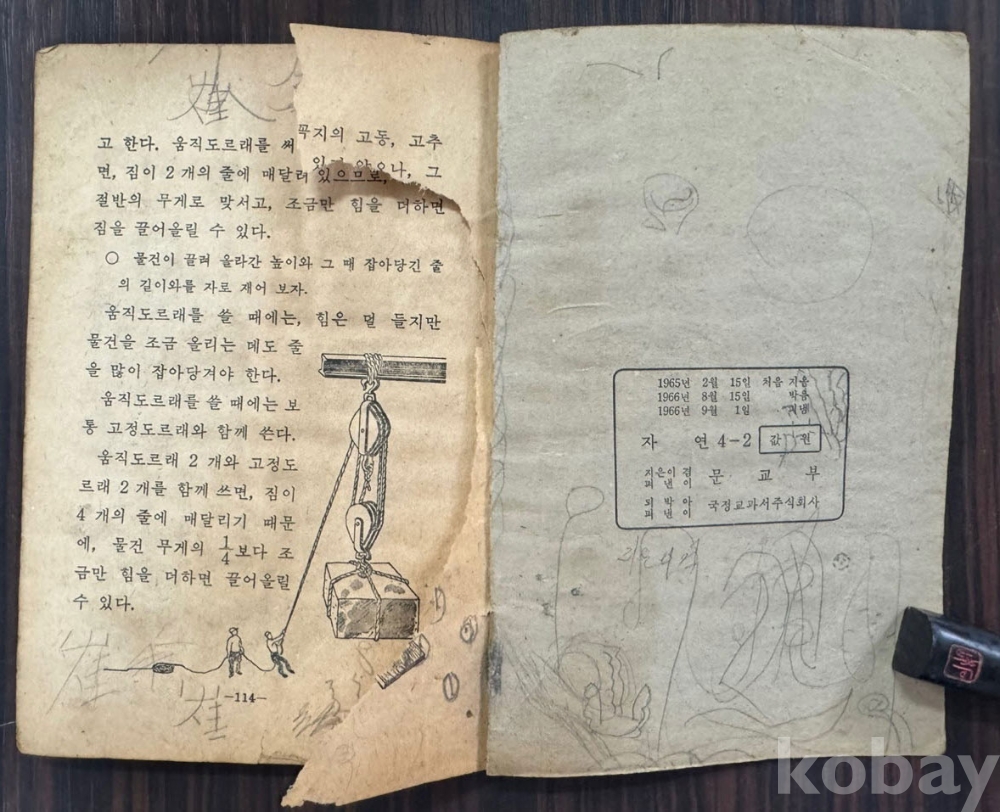 고 한다. 움직도르래를 써
꼭지의 고동, 고추
면, 짐이 2개의 줄에 매달려 있으므로, 나, 그
절반의 무게로 맞서고, 조금만 힘을 더하면
짐을 끌어올릴 수 있다.
○ 물건이 끌려 올라간 높이와 그 때 잡아당긴 줄
의 길이와를 자로 재어 보자.
움직도르래를 쓸 때에는, 힘은 덜 들지만
물건을 조금 올리는 데도 줄
을 많이 잡아당겨야 한다.
움직도르래를 쓸 때에는 보
통 고정도르래와 함께 쓴다.
움직도르래 2개와 고정도
르래 2개를 함께 쓰면, 짐이
4개의 줄에 매달리기 때문
에, 물건 무게의 1/4보다 조
금만 힘을 더하면 끌어올릴
수 있다.
崔
崔
崔
③
②
①
—114—
1965년 2월 15일 처음 지음
1966년 8월 15일 박음
1966년 9월 1일 펴냄
자 연 4-2 값 원
지은이 겸
펴낸이 문교부
되박아
펴낸이 국정교과서주식회사
kobay